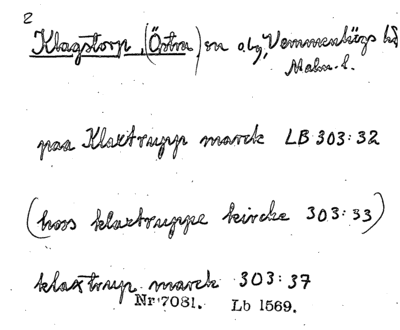 2
Klagstorp, (Östra), sn o by, Vemmenhögs hd
Malm. l.
paa Klaxtrupp marck LB 303:32
(hoss klaxtruppe kircke 303:33)
klaxtrup marck 303:37
Nr 7081. Lb 1569.